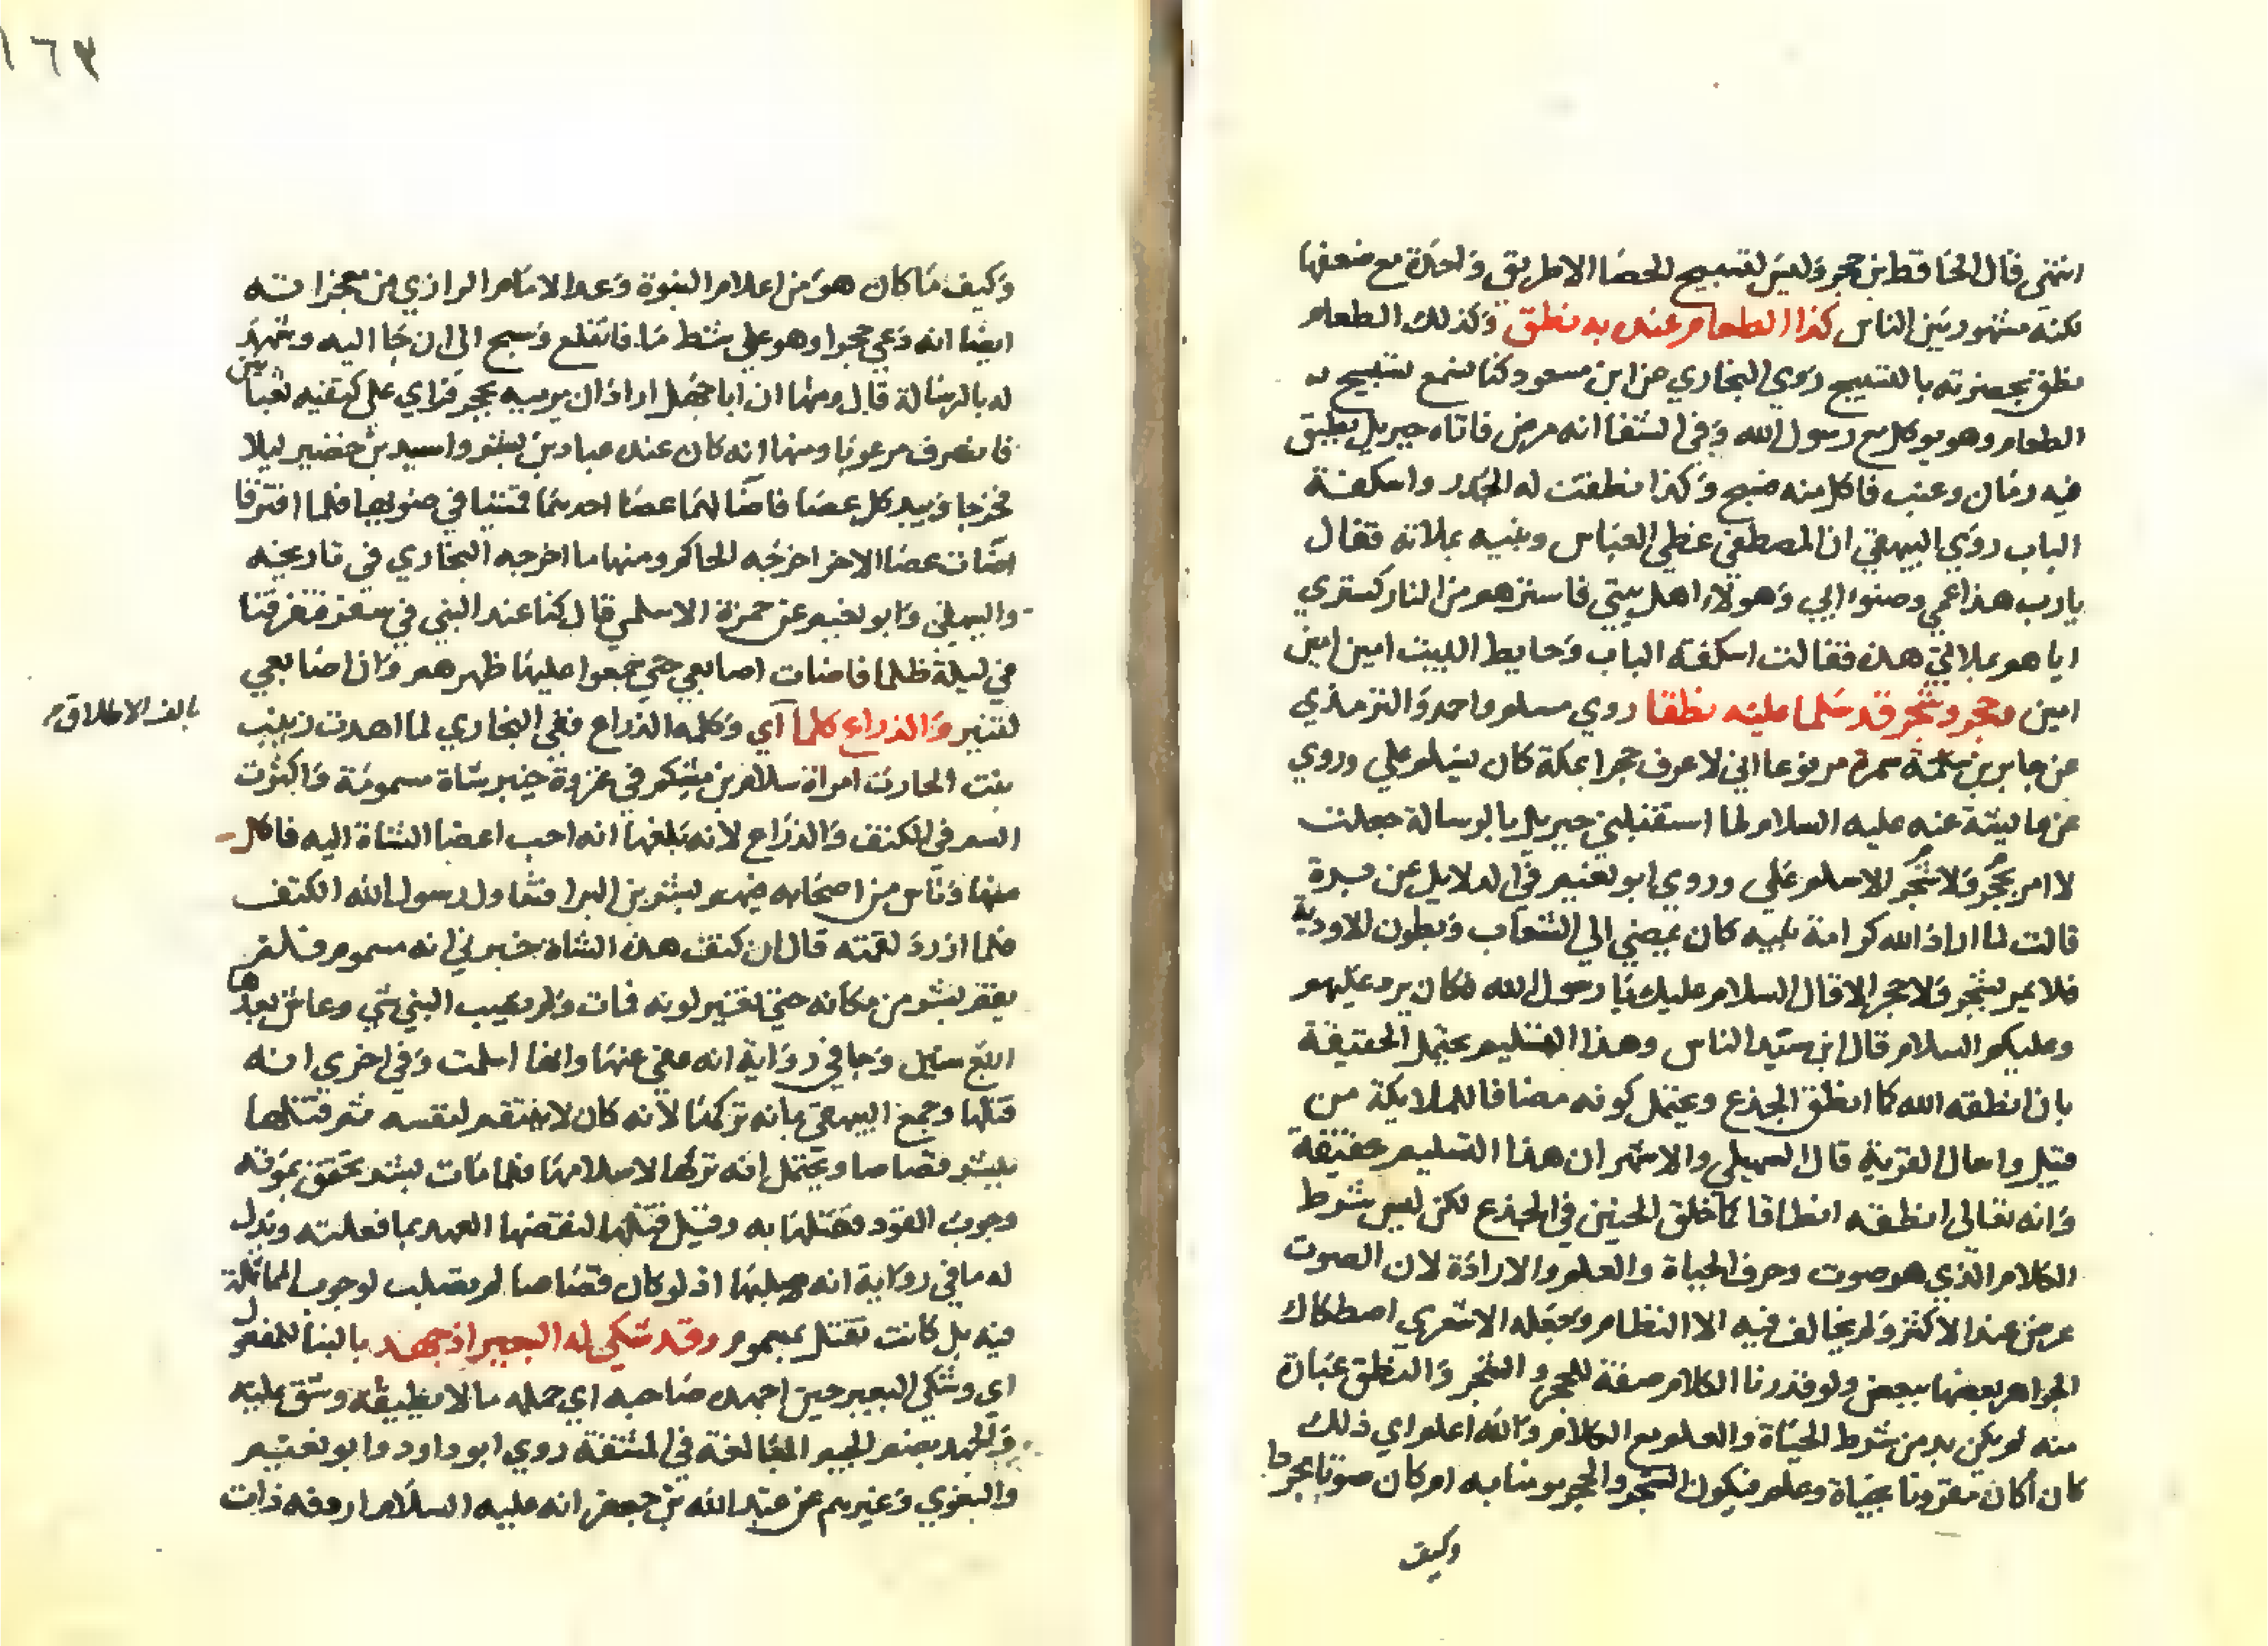 انتهى قال الحافظ بن حجر وليس لتسبيح الحصا الا طريق واحدة مع ضعفها
لكنه مشهور بين الناس كذا الطعام عنده به نطق وكذلك الطعام
نطق بحضرته بالتسبيح روي البخاري عن ابن مسعود كنا نسمع تسبيح
الطعام وهو يوكل مع رسول الله وفي الشفا انه مرض فاتاه جبريل بطبق
فيه رمان وعنب فاكل منه فسبح وكذا نطقت له الجدر واسكفة
الباب روي البيهقي ان المصطفي غطي العباس وبنيه بملاته فقال
يارب هذا عمي وصنوا ابي وهولاء اهل بيتي فاسترهم من النار كستري
اياهم بملاتي هذه فقالت اسكفة الباب وحايط البيت امين امين
امين وحجر وشجر قد سلما عليه نطقا روي مسلم واحمد والترمذي
عن جابر بن سمرة مرفوعا اني لاعرف حجرا بمكة كان يسلم علي وروي
عن عايشة عنه عليه السلام لما استقبلني جبريل بالرسالة جعلت
لا امر بحجر ولا شجر الا سلم علي وروي ابو نعيم في الدلايل عن برة
قالت لما اراد الله كرامة نبيه كان يمضي الي الشعاب وبطون الاودية
فلا يمر بشجر ولا حجر الا قال السلام عليك يا رسول الله فكان يرد عليهم
وعليكم السلام قال ابن سيد الناس وهذا التسليم يحتمل الحقيقة
بان انطقه الله كما انطق الجذع ويحتمل كونه مضافا للملايكة من
قبيل واسال القرية قال السهيلي والاشهر ان هذا التسليم حقيقة
وانه تعالى انطقه انطاقا كما خلق الحنين في الجذع لكن ليس شرط
الكلام الذي هو صوت وحرف الحياة والعلم والارادة لان الصوت
عرض عند الاكثر ولم يخالف فيه الا النظام وجعله الاشعري اصطكاك
الجواهر بعضها ببعض ولو قدرنا الكلام صفة للحجر والشجر والنطق عبارة
عنه لم يكن بد من شرط الحياة والعلم مع الكلام والله اعلم اي ذلك
كان أكان مقرونا بحياة وعلم فيكون الشجر والحجر مومنا به ام كان صوتا مجردا
وكيف
١٦٣
وكيف ما كان هو من اعلام النبوة وعد الامام الرازي من معجزاته
ايضا انه دعي حجرا وهو علي شط ما فانقلع وسبح الي ان جا اليه وشهد
له بالرسالة قال ومنها ان اباجهل اراد ان يرميه بحجر فراي علي كتفيه ثعبانين
فانصرف مرعوبا ومنها انه كان عنده عباد بن بشر واسيد بن حضير ليلا
فخرجا وبيد كل عصا فاضا لهما عصا احدهما فمشيا في ضوبها فلما افترقا
اضات عصا الاخر اخرجه الحاكم ومنها ما اخرجه البخاري في تاريخه
والبيهقي وابو نعيم عن حمزة الاسلمي قال كنا عند النبي في سفر فتفرقنا
في ليلة ظلما فاضات اصابعي حتي جمعوا عليها ظهرهم وان اصابعي
لتنير والذراع كلما آي وكلمه الذراع ففي البخاري لما اهدت زينب
بالف الاطلاق
بنت الحارث امراة سلام بن مشكم في غزوة خيبر شاة مسمومة واكثرت
السم في الكتف والذراع لانه بلغها انه احب اعضا الشاة اليه فاكل
منها وناس من اصحابه فيهم بشر بن البرا فتناول رسول الله الكتف
فلما ازدرد لقمته قال ان كتف هذه الشاة تخبرني انه مسموم فلم
يقم بشر من مكانه حتي تغير لونه فمات ولم يصب النبي شي وعاش بعدها
اربع سنين وجا في رواية انه عفي عنها وانها اسلمت وفي اخري انه
قتلها وجمع البيهقي بانه تركها لانه كان لا ينتقم لنفسه ثم قتلها
ببشر قصاصا ويحتمل انه تركها لاسلامها فلما مات بشر تحقق بموته
وجوب القود فقتلها به وقيل قتلها لنقضها العهد بما فعلته ويدل
له ما في رواية انه صلبها اذ لو كان قصاصا لم يصلب لوجوب المماثلة
فيه بل كانت تقتل بمسموم وقد شكي له البعير اذ جهد بالبنا للمفعول
اي وشكي البعير حين اجهده صاحبه اي حمله ما لا يطيقه وشق عليه
والجهد بضم الجيم المبالغة في المشقة روي ابو داود وابو نعيم
والبغوي وغيرهم عن عبد الله بن جعفر انه عليه السلام اردفه ذات